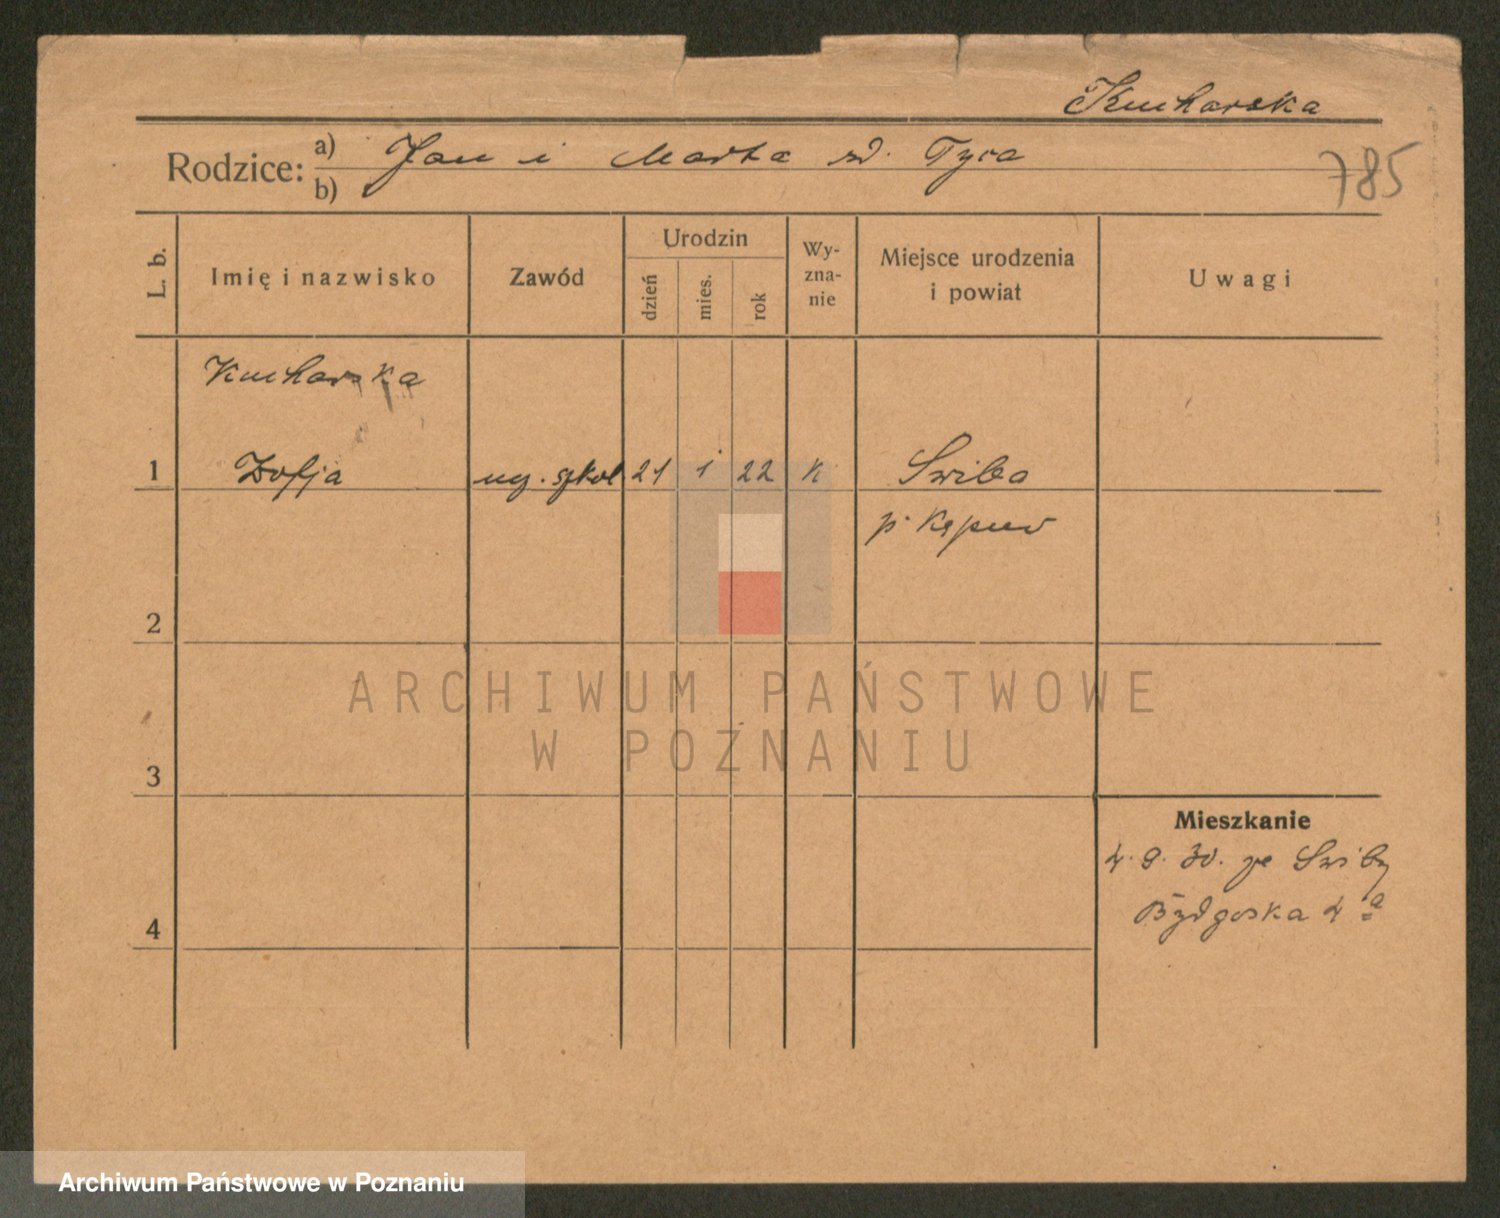 Kucharska
Rodzice: a) Jan i Marta zd. Tyca
b)
785
L. b.
Imię i nazwisko
Zawód
Urodzin
dzień
mies.
rok
Wy-
zna-
nie
Miejsce urodzenia
i powiat
Uwagi
Kucharska
1 Zofja ucz. szkol. 21 1 22 K Swiba
p. Kępno
2
3
4
Mieszkanie
4. 9. 30. ze Swiby
Bydgoska 4 a
ARCHIWUM PAŃSTWOWE
W POZNANIU
Archiwum Państwowe w Poznaniu